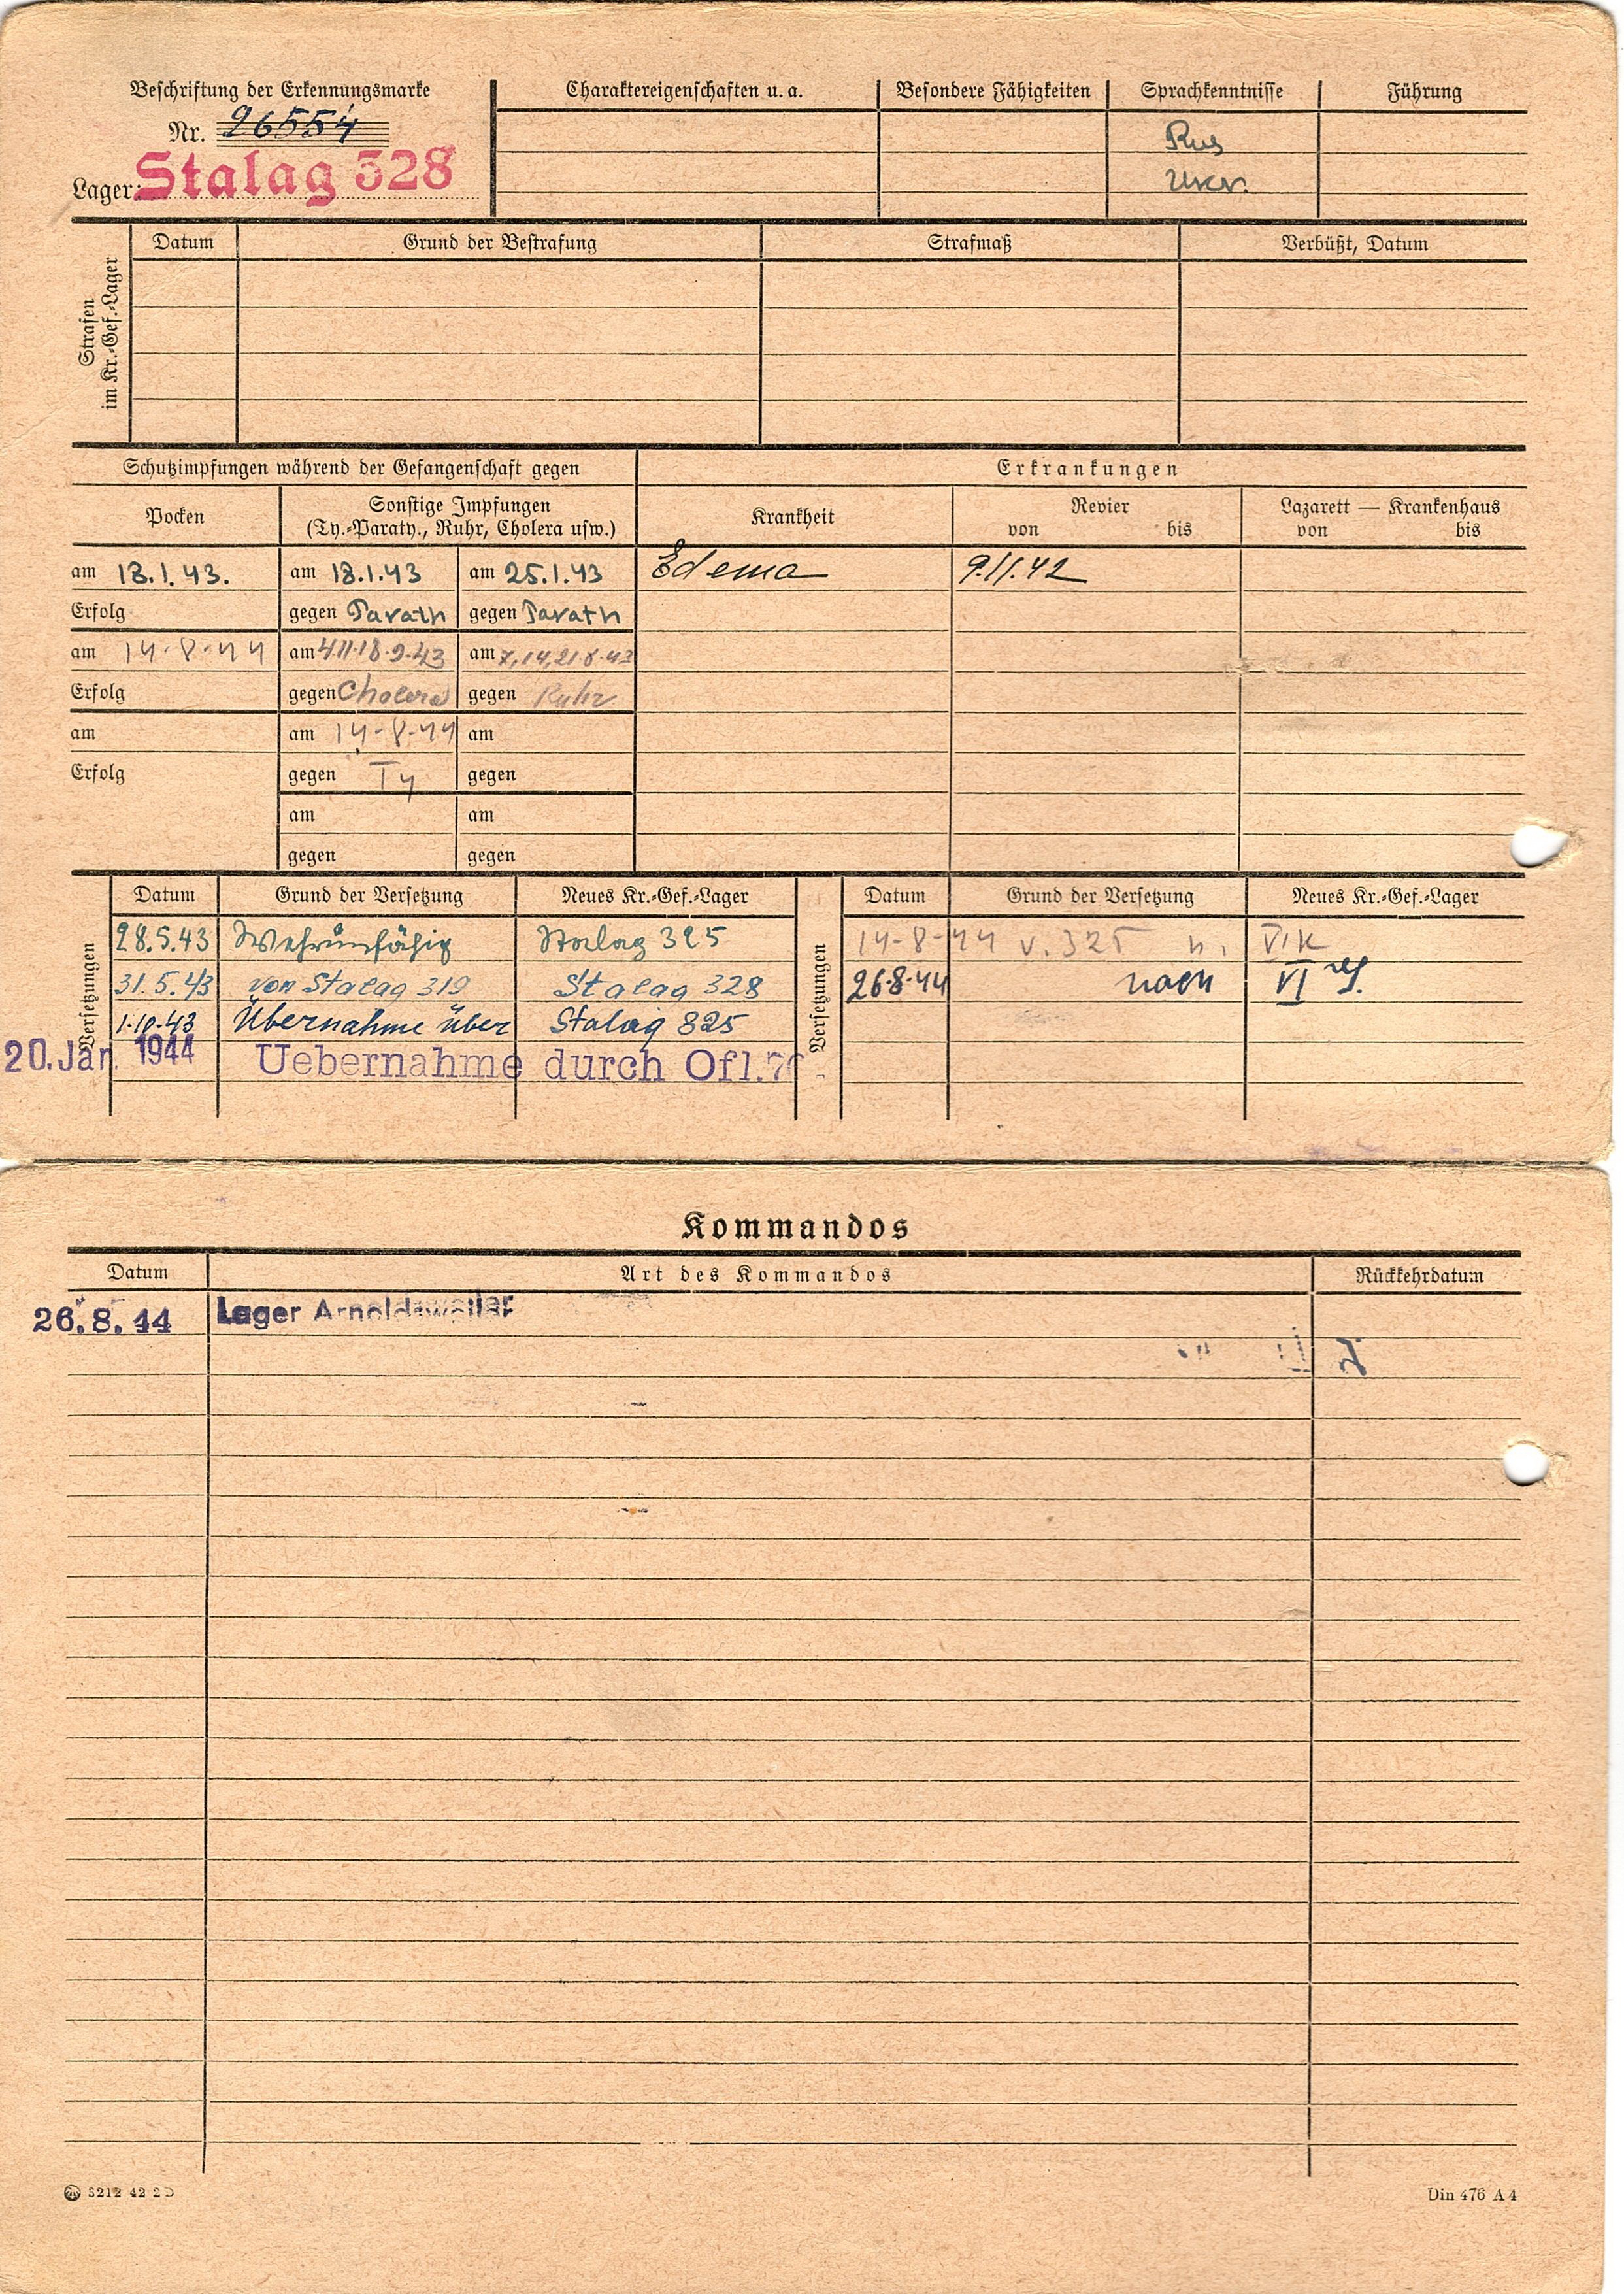 Beschriftung der Erkennungsmarke
Nr. 26554
Lager: Stalag 328
Charaktereigenschaften u. a.
Besondere Fähigkeiten
Sprachkenntnisse
Rus
Ukr.
Führung
Strafen
im Kr.-Gef.-Lager
Datum
Grund der Bestrafung
Strafmaß
Verbüßt, Datum
Schutzimpfungen während der Gefangenschaft gegen
Erkrankungen
Pocken
Sonstige Impfungen
(Ty.-Paraty., Ruhr, Cholera usw.)
Krankheit
Revier
von bis
Lazarett — Krankenhaus
von bis
am 18.1.43. am 18.1.43 am 25.1.43 Edema 9.11.42
Erfolg gegen Parath gegen Parath
am 14-8-44 am 4.11.18.9.43 am 7,14,21.8.43
Erfolg gegen Cholera gegen Ruhr
am am 14-8-44 am
Erfolg gegen Ty gegen
am am
gegen gegen
Versetzungen
Datum Grund der Versetzung Neues Kr.-Gef.-Lager
28.5.43 Stalag 325
31.5.43 von Stalag 319 Stalag 328
1.10.43 Übernahme über Stalag 325
20. Jan. 1944 Uebernahme durch Ofl. 76
Versetzungen
Datum Grund der Versetzung Neues Kr.-Gef.-Lager
14-8-44 v. 325 n. VI K
26.8.44 nach VI
Kommandos
Datum Art des Kommandos Rückkehrdatum
26.8.44 Lager Arnoldsweiler
S212 42 2D
Din 476 A 4